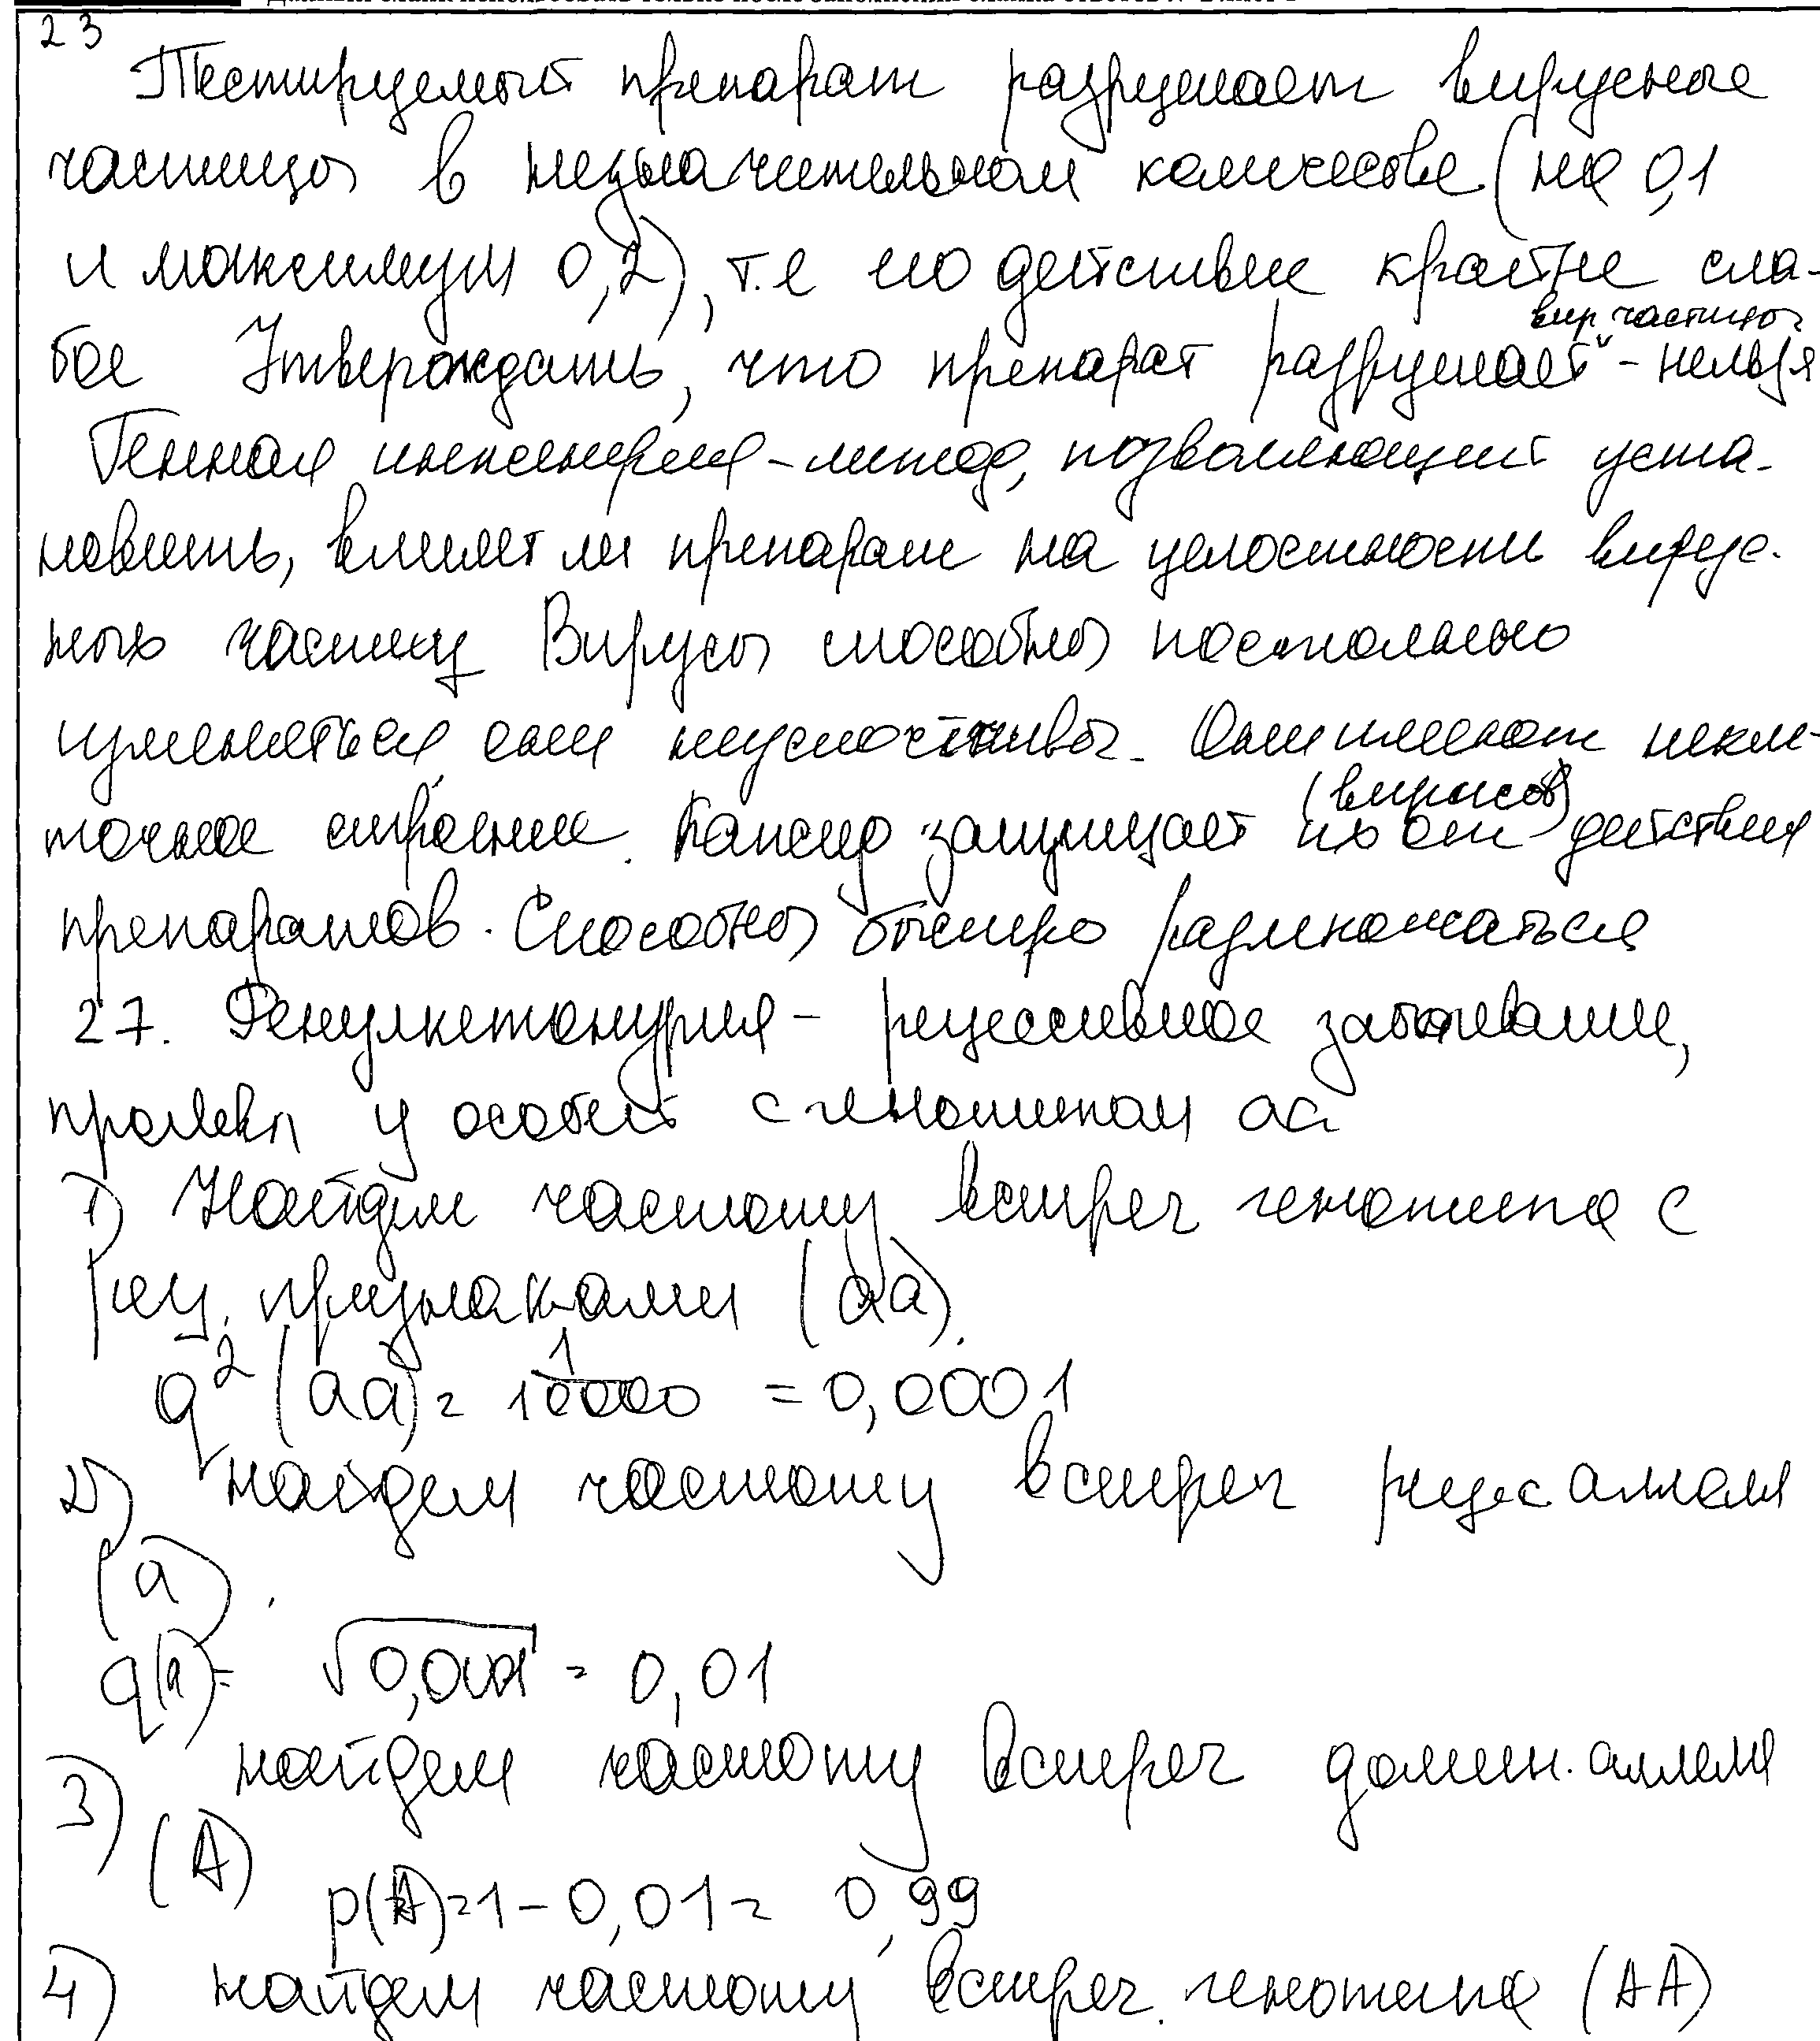 23
Тестируемый препарат разрушает вирусные
частицы в незначительном количесве (на 0,1
и максимум 0,2), т.е его действие крайне сла-
бое Утверждать, что препарат разрушает вир частицы - нельзя
Генная инженерия - метод, позволяющий уста-
новить, влияет ли препарат на целостность вирус-
ных частиц Вирусы способны постоянно
изменяться, они неустойчивы. Они имеют некле-
точное строение. Капсид защищает их (вирусов) от действия
препаратов. Способны быстро размножаться
27. Фенулкетонурия - рецессивное заболевание,
проявл у особей с генотипом аа
1) Найдем частоту встреч генотипа с
рец. признаками (аа).
q² (aa) = 1/10000 = 0,0001
2) найдем частоту встреч рецес аллеля
(а).
q(a) = √0,0001 = 0,01
3) найдем частоту встреч домин. аллеля
(А)
p(A) = 1 - 0,01 = 0,99
4) найдем частоту встреч. генотипа (АА)